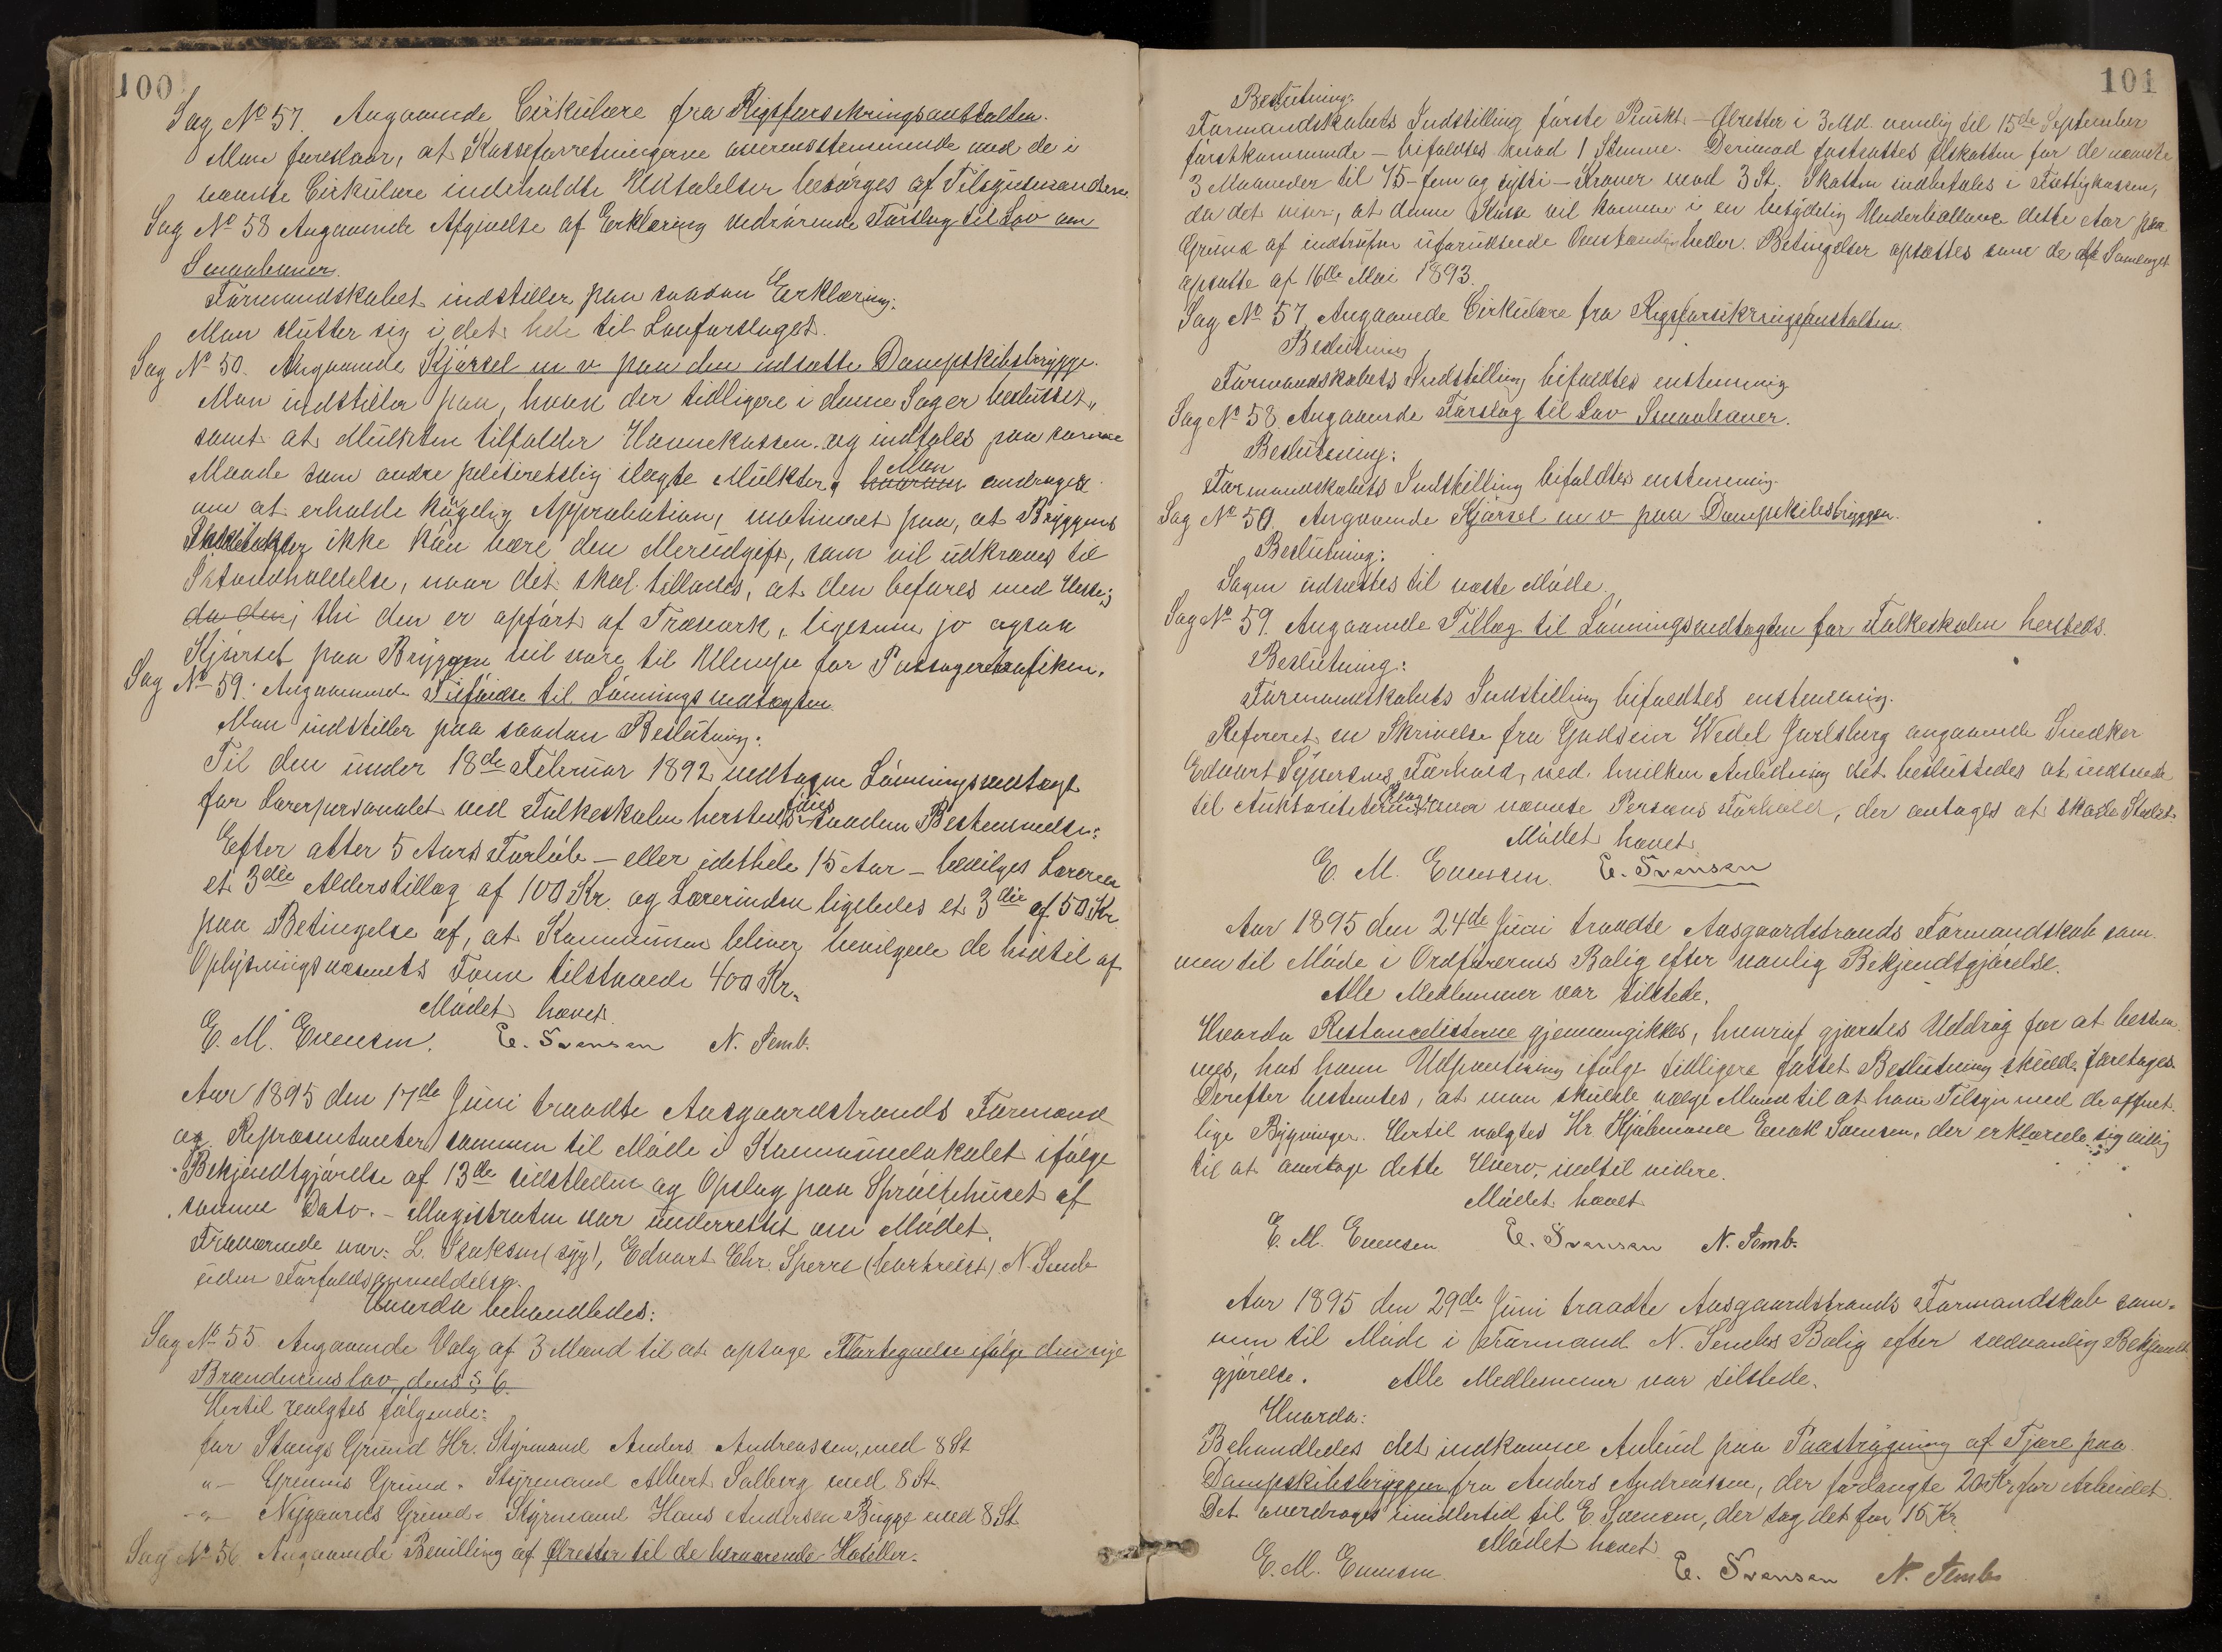 100
Sag No 57. Angaaende Cirkulære fra Rigsforsikringsanstalten.
Man foreslaar, at Kasseforretningerne overensstemmende med de i
nævnte Cirkulære indeholdte Udtalelser besørges af Tilsynsmændene.
Sag No 58 Angaaende Afgivelse af Erklæring vedrørende Forslag til Lov om
Smaabaner.
Formandskabet indstiller paa saadan Erklæring:
Man slutter sig i det hele til Lovforslaget.
Sag No 50. Angaaende Kjørsel m v paa den udsatte Dampskibsbrygge.
Man indstiller paa, hvad der tidligere i denne Sag er besluttet,
samt at Mulkten tilfalder Havnekassen og indtales paa samme
Maade som andre politiretslig ilagte Mulkter, hvorom Man andrager
om at erholde kongelig Approbation, motiveret paa, at Bryggens
Indtægter ikke kan bære den Merudgift, som vil udkræves til
Istandholdelse, naar det skal tillades, at den befares med Heste;
da den; thi den er opført af Træværk, ligesom jo ogsaa
Kjørsel paa Bryggen vil være til Ulempe for Passagertrafiken.
Sag No 59. Angaaende Tilføielse til Lønningsvedtægten
Man indstiller paa saadan Beslutning:
Til den under 18de Februar 1892 vedtagne Lønningsvedtægt
for Lærerpersonalet ved Folkeskolen hersteds føies saadan Bestemmelse:
Efter atter 5 Aars Forløb – eller idethele 15 Aar – bevilges Læreren
et 3die Alderstillæg af 100 Kr. og Lærerinden ligeledes et 3die af 50 Kr.
paa Betingelse af, at Kommunen bliver bevilgede de hidtil af
Oplysningsvæsenets Fond tilstaaede 400 Kr.
Mødet hævet.
E. M. Evensen. E. Svensen N. Semb.
Aar 1895 den 17de Juni traadte Aasgaardstrands Formænd
og Repræsentanter sammen til Møde i Kommunelokalet ifølge
Bekjendtgjørelse af 13de sidstleden og Opslag paa Sprøitehuset af
samme Dato. – Magistraten var underrettet om Mødet.
Fraværende var: L. Isaksen (syg), Edvart Chr. Sperre (bortreist) N. Semb
uden Forfaldsanmeldelse.
Hvorda behandledes:
Sag No 55. Angaaende Valg af 3 Mænd til at optage Fortegnelse ifølge den nye
Brændevinslov, dens § 6.
Hertil valgtes følgende:
for Stangs Grund Hr. Styrmand Anders Andreassen, med 8 St
"– Grevens Grund " Styrmand Albert Solberg med 8 St
"– Nygaards Grund " Styrmand Hans Andersen Bugge med 8 St
Sag No 56. Angaaende Bevilling af Ølretter til de herværende Hoteller.
101
Beslutning:
Formandskabets Indstilling første Punkt – Ølretter i 3 Md. nemlig til 15de September
førstkommende – bifaldtes mod 1 Stemme. Dernæst fastsattes Ølskatten for de nævnte
3 Maaneder til 75 – fem og sytti – Kroner mod 3 St. Skatten indbetales i Fattigkassen,
da det viser, at denne Kasse vil komme i en betydelig Underballance dette Aar paa
Grund af indtrufne uforudseede Omstændigheder. Betingelser opsættes som de af Samlaget
opsatte af 16de Mai 1893.
Sag No 57 Angaaende Cirkulære fra Rigsforsikringsanstalten.
Beslutning
Formandskabets Indstilling bifaldtes enstemmig
Sag No 58. Angaaende Forslag til Lov Smaabaner.
Beslutning:
Formandskabets Indstilling bifaldtes enstemmig.
Sag No 50. Angaaende Kjørsel m v paa Dampskibsbryggen.
Beslutning:
Sagen udsættes til næste Møde.
Sag No 59. Angaaende Tillæg til Lønningsvedtægten for Folkeskolen hersteds.
Beslutning:
Formandskabets Indstilling bifaldtes enstemmig.
Refereret en Skrivelse fra Godseier Wedel Jarlsberg angaaende Snedker
Edvart Syversens Forhold, ved hvilken Anledning det besluttedes at indsende
til Auktoriteterne Klage over nævnte Persons Forhold, der antages at skade Stedet.
Mødet hævet.
E. M. Evensen. E. Svensen
Aar 1895 den 24de Juni traadte Aasgaardstrands Formandskab sam-
men til Møde i Ordførerens Bolig efter vanlig Bekjendtgjørelse.
Alle Medlemmer var tilstede.
Hvorda Restancelisterne gjennemgikkes, hvoraf gjordes Uddrag for at bestem-
mes, hos hvem Udpantning ifølge tidligere fattet Beslutning skulde foretages.
Derefter bestemtes, at man skulde vælge Mand til at have Tilsyn med de offent-
lige Bygninger. Hertil valgtes Hr. Enok Svensen, der erklærede sig villig
til at overtage dette Hverv, indtil videre.
Mødet hævet
E. M. Evensen E. Svensen N. Semb.
Aar 1895 den 29de Juni traadte Aasgaardstrands Formandskab sam-
men til Møde i Formand N. Sembs Bolig efter sædvanlig Bekjendt-
gjørelse. Alle Medlemmer var tilstede.
Hvorda:
Behandledes det indkomne Anbud paa Paastrygning af Tjære paa
Dampskibsbryggen fra Anders Andreassen, der forlangte 20 Kr for Arbeidet.
Det overdroges imidlertid til E. Svensen, der tog det for 15 Kr.
Mødet hævet
E. M. Evensen E. Svensen N. Semb